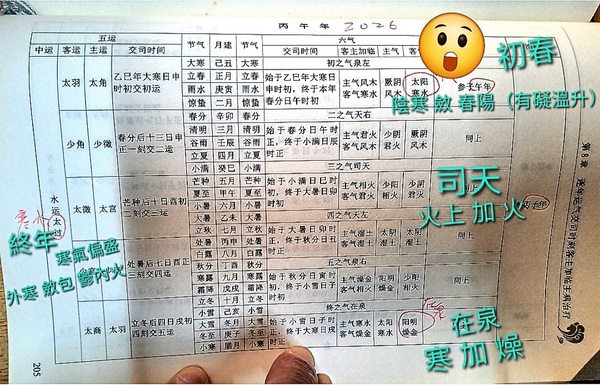 丙午年 2026
五运 六气
中运 客运 主运 交司时间 节气 月建 节气 交司时间 客主加临 主气 客气
太羽 太角 乙巳年大寒日申时初交初运
大寒 己丑 大寒 初之气泉左
立春 正月 立春
雨水 庚寅 雨水
惊蛰 二月 惊蛰
始于乙巳年大寒日申时初,终于本年春分日午时初
主气风木 客气寒水 厥阴风木 太阳寒水 参子午年
春分 辛卯 春分 二之气天右
少角 少徵 春分后十三日申正一刻交二运
清明 三月 清明
谷雨 壬辰 谷雨
立夏 四月 立夏
始于春分日午时正,终于小满日辰时正
主气君火 客气风木 少阴君火 厥阴风木 同上
小满 癸巳 小满 三之气司天
水运太过
太徵 太宫 芒种后十日酉初二刻交三运
芒种 五月 芒种
夏至 甲午 夏至
小暑 六月 小暑
始于小满日巳时初,终于大暑日卯时初
主气相火 客气君火 少阳相火 少阴君火
大暑 乙未 大暑 四之气天左
立秋 七月 立秋
处暑 丙申 处暑
白露 八月 白露
主气湿土 客气湿土 太阴湿土 太阴湿土 同上
处暑后七日酉正三刻交四运
秋分 丁酉 秋分 五之气泉右
寒露 九月 寒露
霜降 戊戌 霜降
立冬 十月 立冬
始于秋分日寅时初,终于小雪日子时初
主气燥金 客气相火 阳明燥金 少阳相火 同上
小雪 己亥 小雪 终之气在泉
太商 太羽 立冬后四日戌初四刻交五运
大雪 冬月 大雪
冬至 庚子 冬至
小寒 腊月 小寒
始于小雪日子时正,终于大寒日戌时正
主气寒水 客气燥金 太阳寒水 阳明燥金 同上
205
第8章 逐年运气交司时刻客主加临主病治疗
初春
陰寒 斂 春陽（有礙溫升）
司天
火上 加 火
終年
寒氣偏盛
外寒 斂包 鬱內火
在泉
寒 加 燥